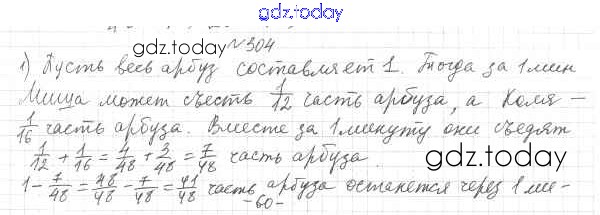 gdz.today
gdz.today
№304
1) Пусть весь арбуз составляет 1. Тогда за 1 мин
Миша может съесть 1/12 часть арбуза, а Коля –
1/16 часть арбуза. Вместе за 1 минуту они съедят
1/12 + 1/16 = 4/48 + 3/48 = 7/48 часть арбуза.
gdz.today
1 - 7/48 = 48/48 - 7/48 = 41/48 часть арбуза останется через 1 ми-
-60-
gdz.today